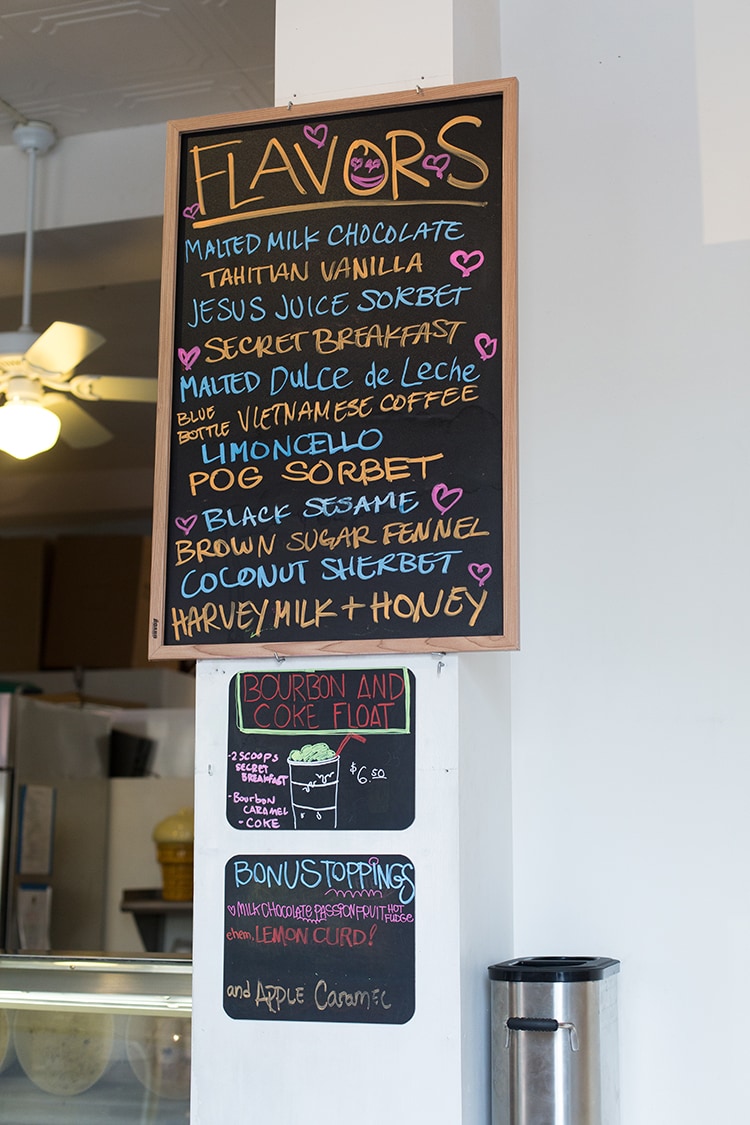 FLAVORS
MALTED MILK CHOCOLATE
TAHITIAN VANILLA
JESUS JUICE SORBET
SECRET BREAKFAST
MALTED DULCE de Leche
BLUE BOTTLE VIETNAMESE COFFEE
LIMONCELLO
POG SORBET
BLACK SESAME
BROWN SUGAR FENNEL
COCONUT SHERBET
HARVEY MILK + HONEY
BOURBON AND
COKE FLOAT
-2 SCOOPS
SECRET
BREAKFAST
$6.50
-Bourbon
CARAMEL
-COKE
BONUS TOPPINGS
MILK CHOCOLATE PASSIONFRUIT HOT FUDGE
ehem, LEMON CURD!
and APPLE CARAMEL